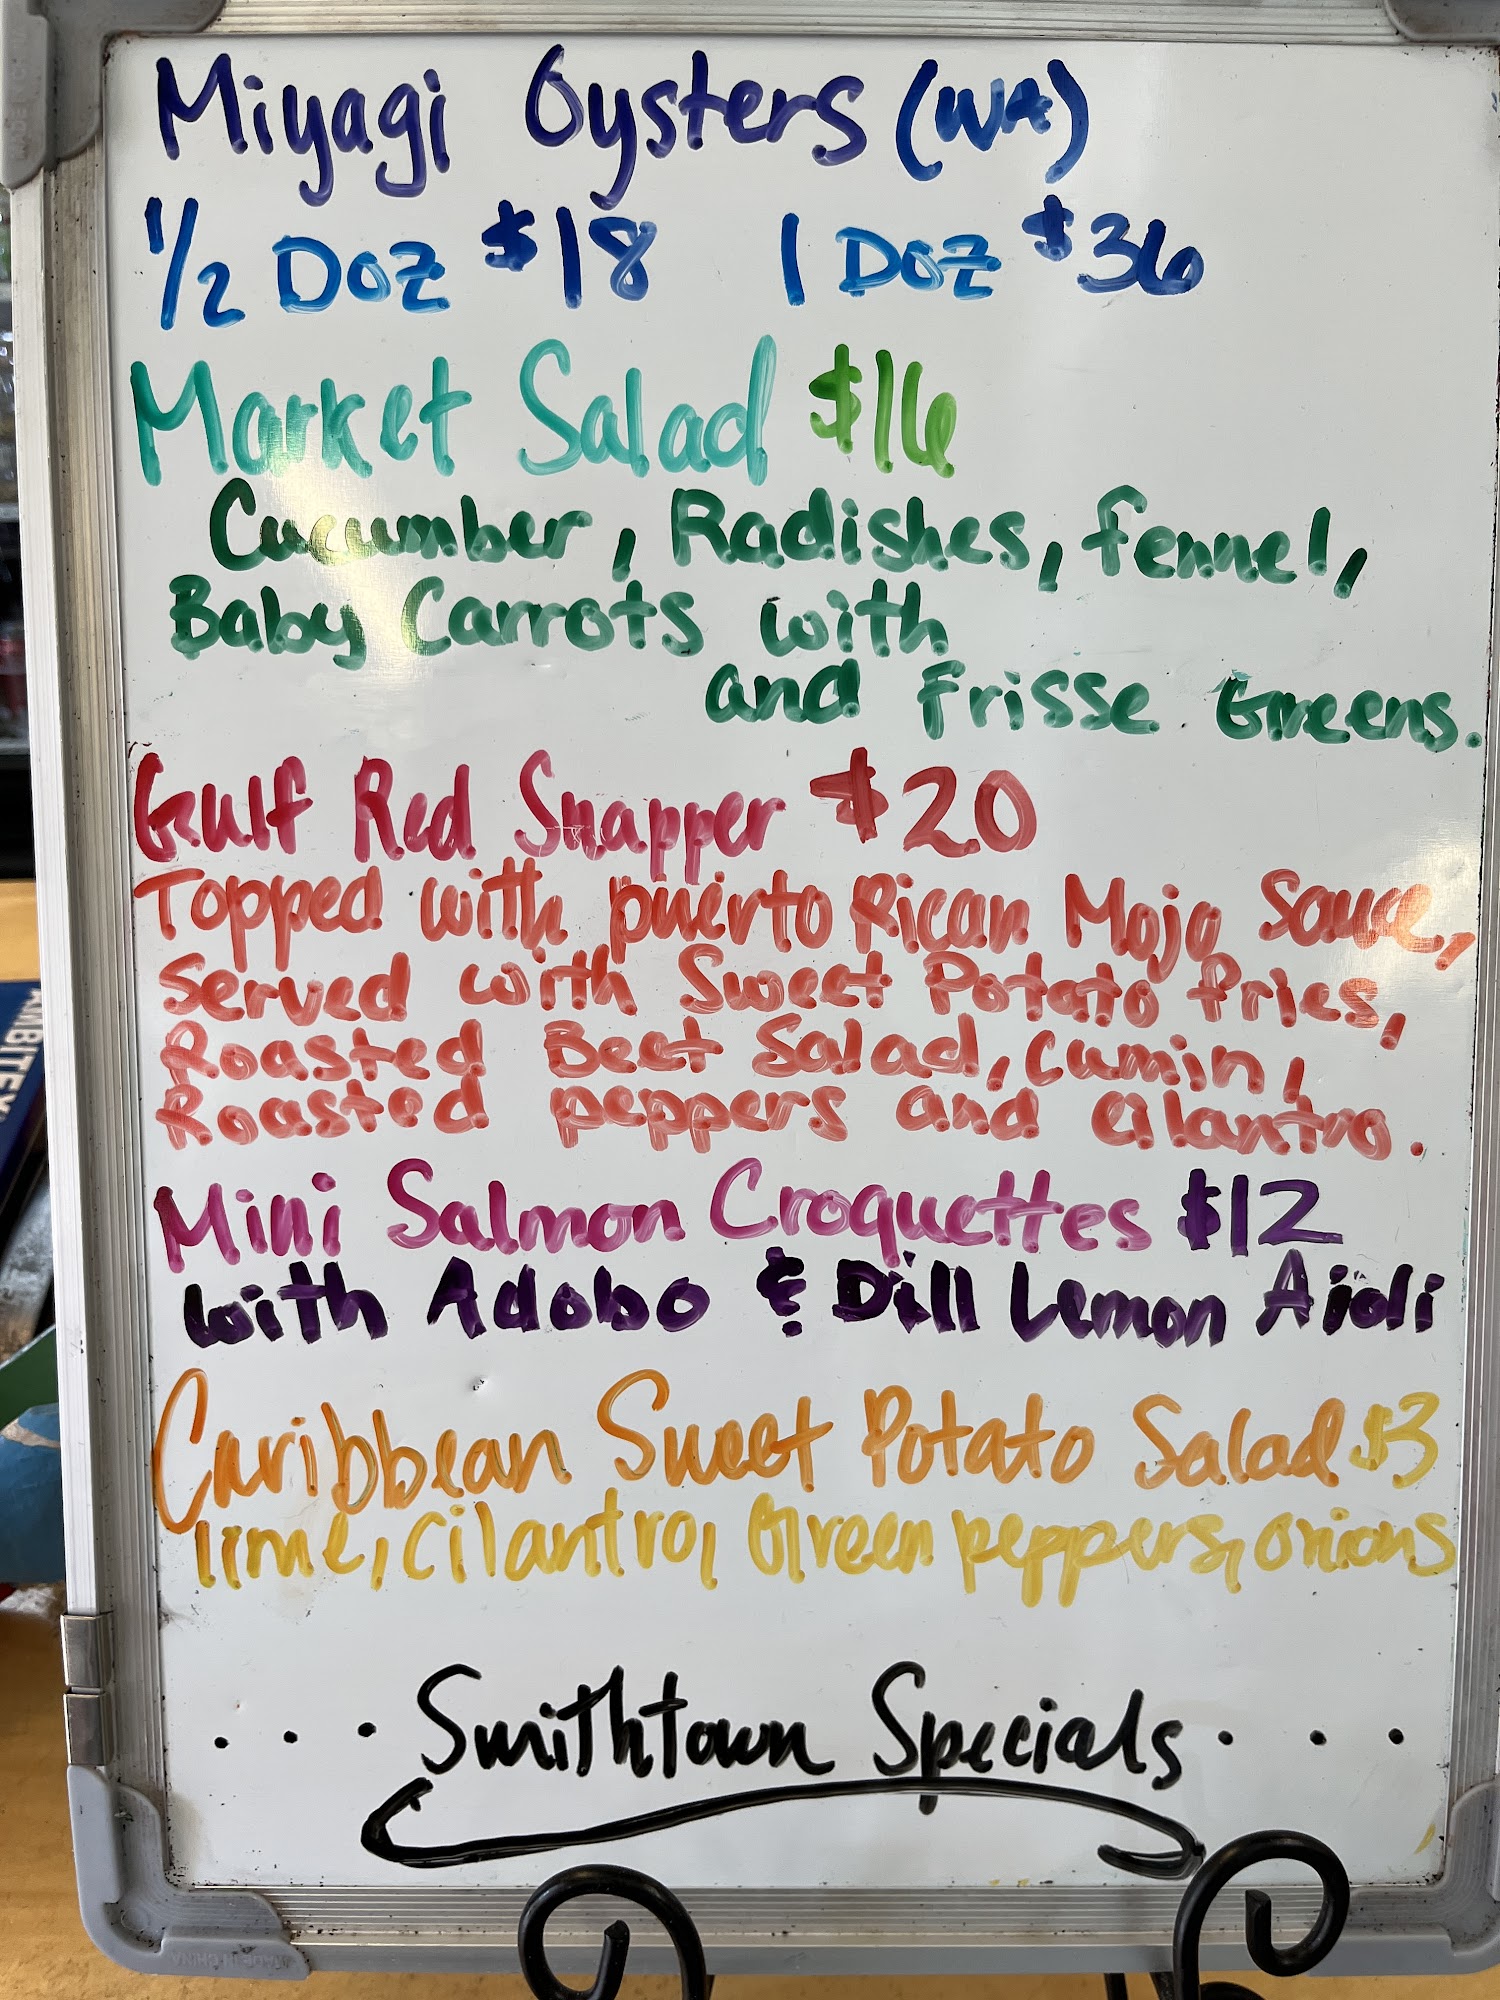 Miyagi Oysters (WA)
1/2 Doz $18 1 Doz $36
Market Salad $16
Cucumber, Radishes, fennel,
Baby Carrots with
and Frisse Greens.
Gulf Red Snapper $20
Topped with puerto Rican Mojo Sauce,
Served with Sweet Potato fries,
Roasted Beet Salad, Cumin,
Roasted peppers and Cilantro.
Mini Salmon Croquettes $12
with Adobo & Dill Lemon Aioli
Caribbean Sweet Potato Salad $3
lime, cilantro, Green peppers, onions
... Smithtown Specials...
MADE IN CHINA